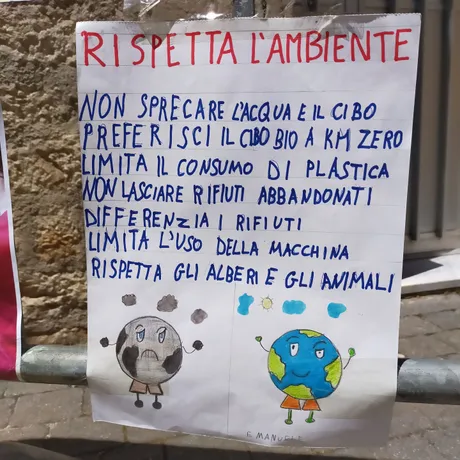 RISPETTA L'AMBIENTE
NON SPRECARE L'ACQUA E IL CIBO
PREFERISCI IL CIBO BIO A KM ZERO
LIMITA IL CONSUMO DI PLASTICA
NON LASCIARE RIFIUTI ABBANDONATI
DIFFERENZIA I RIFIUTI
LIMITA L'USO DELLA MACCHINA
RISPETTA GLI ALBERI E GLI ANIMALI